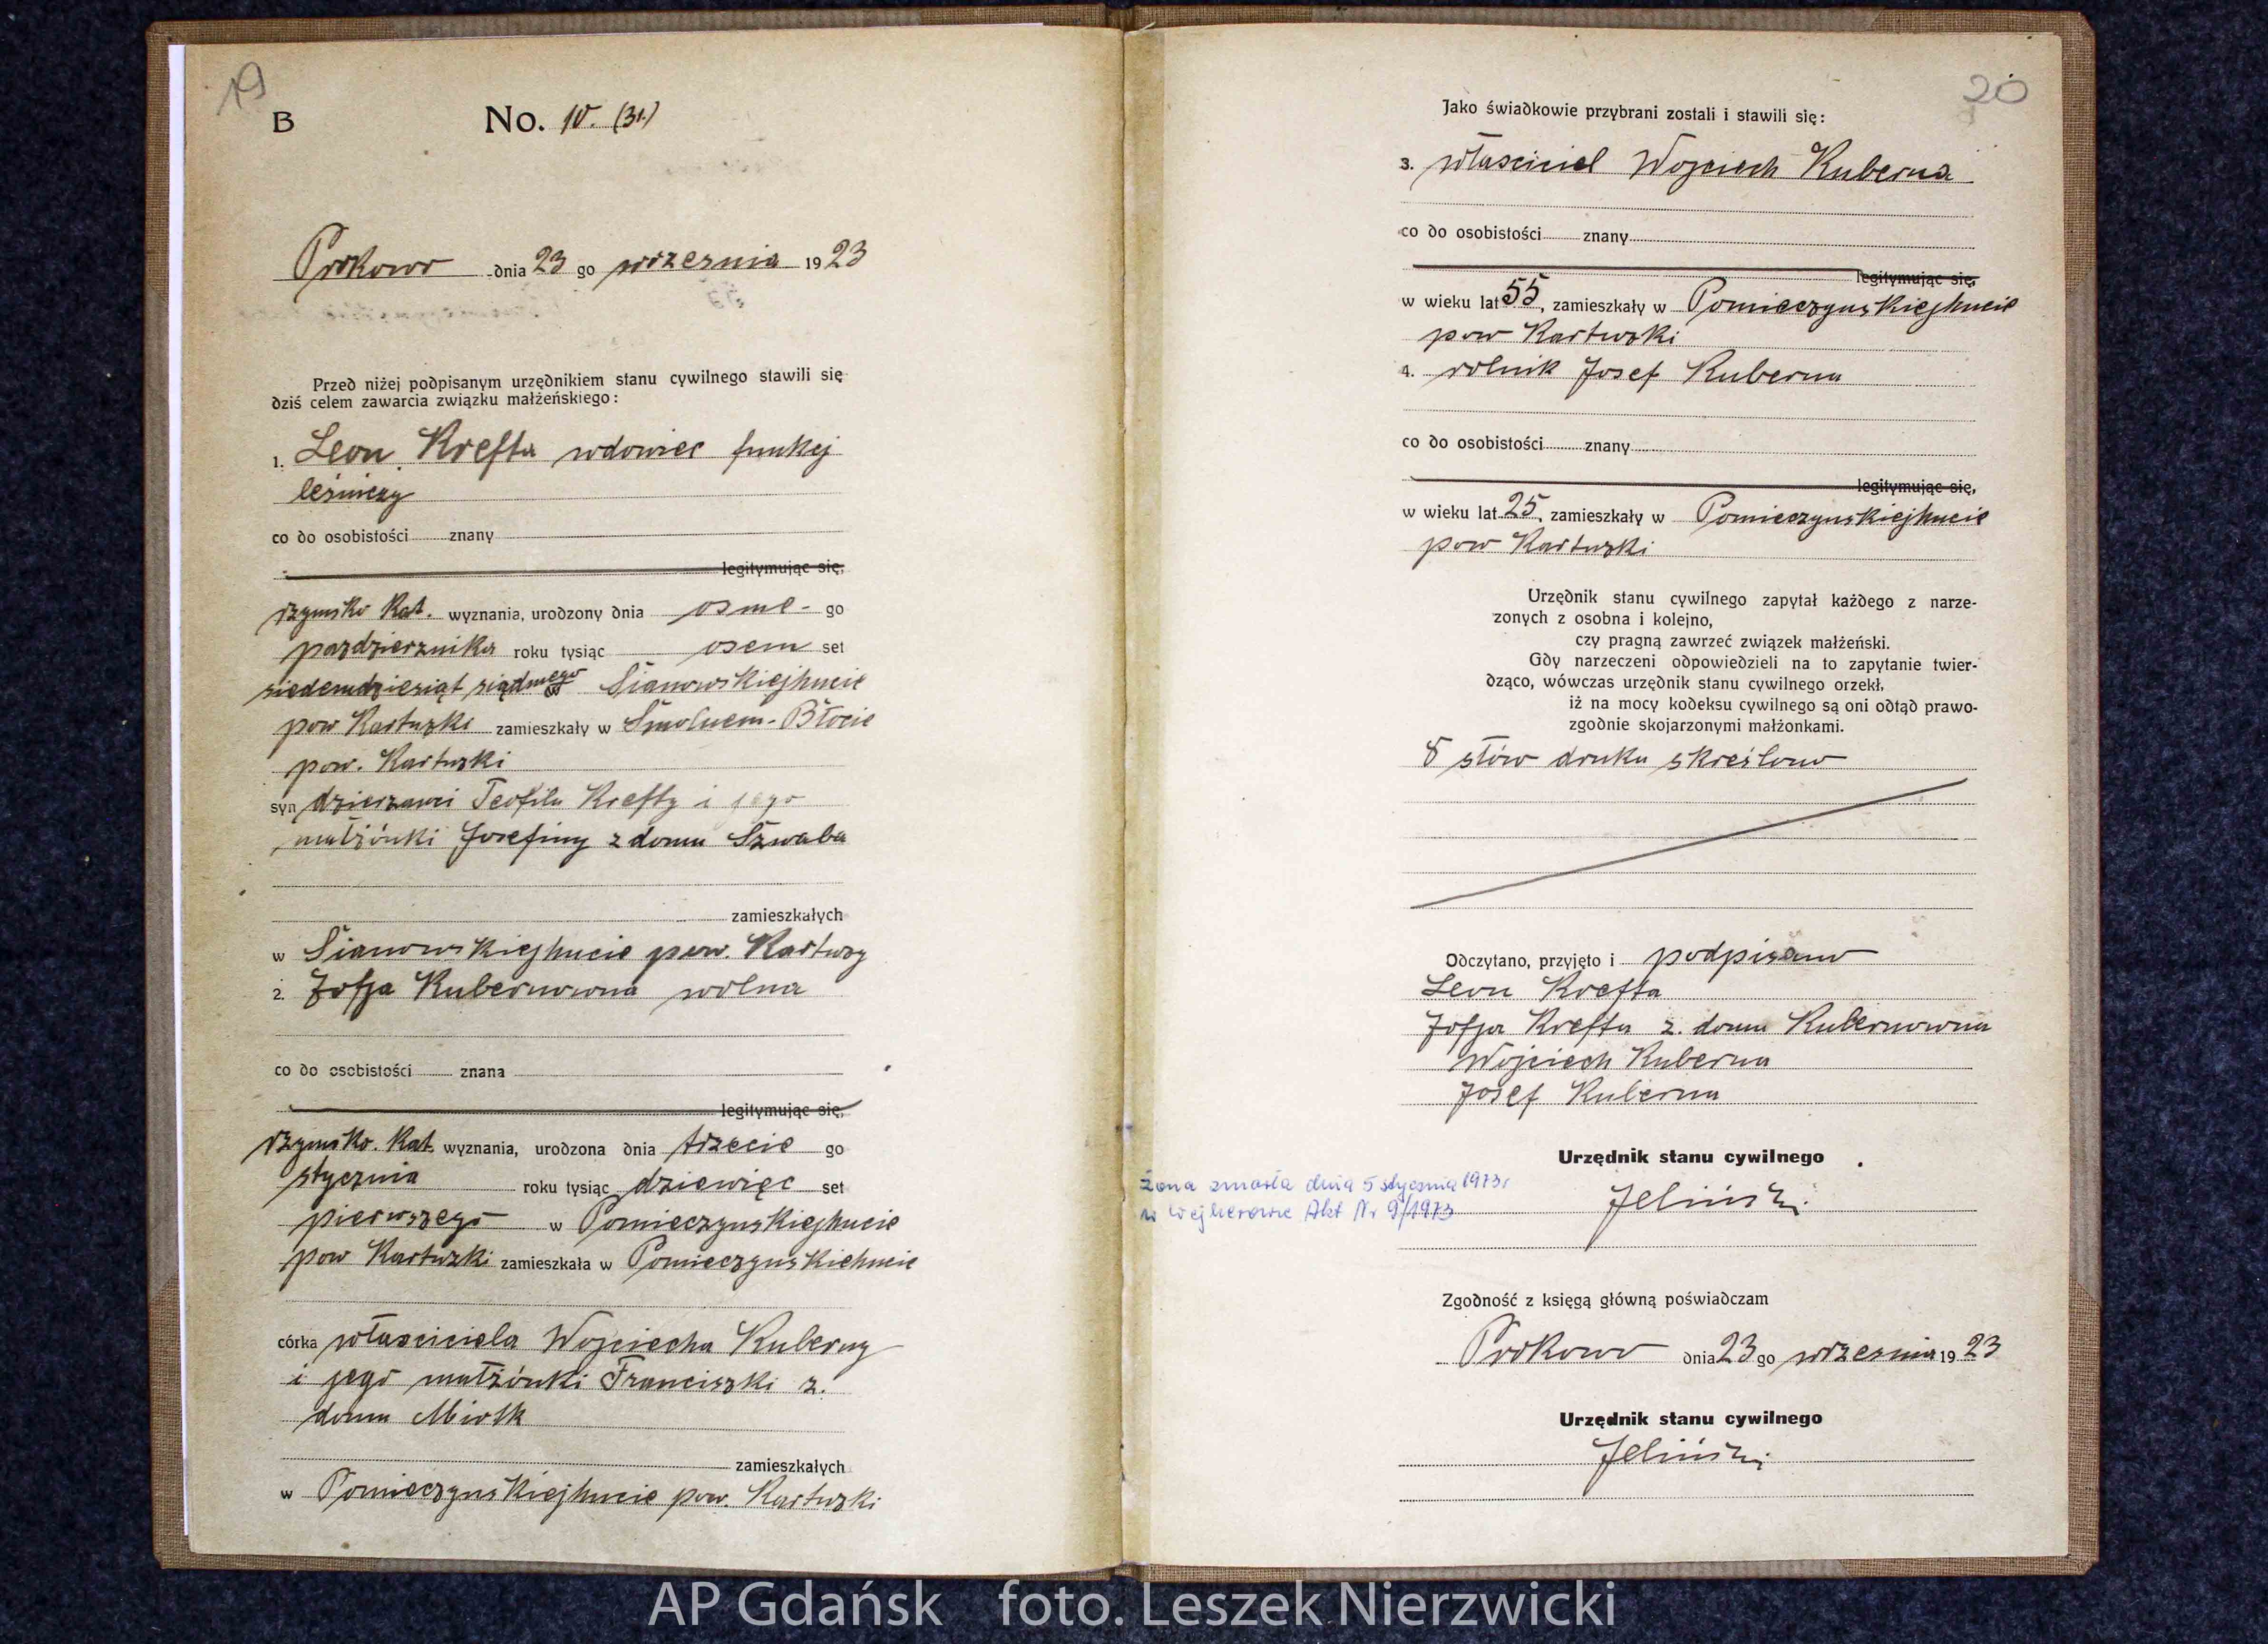 19
B No. 10. (31.)
Prokowo dnia 23 go września 1923
Przed niżej podpisanym urzędnikiem stanu cywilnego stawili się
dziś celem zawarcia związku małżeńskiego:
1. Leon Krefta wdowiec funkcj
leśniczy
co do osobistości znany
legitymując się,
rzymsko kat. wyznania, urodzony dnia osme- go
pazdziernika roku tysiąc osem set
siedemdziesiąt siądmego w Sianowskiejhucie
pow Kartuzki zamieszkały w Smolnem-Błocie
pow. Kartuzki
syn dzierzawci Teofila Krefty i jego
małżónki Josefiny z domu Szwaba
zamieszkałych
w Sianowskiejhucie pow. Kartuzy
2. Zofja Kubernowna wolna
co do osobistości znana
legitymując się,
rzymsko. kat. wyznania, urodzona dnia trzecie go
stycznia roku tysiąc dziewięc set
pierwszego w Pomieczynskiejhucie
pow Kartuzki zamieszkała w Pomieczynskiehucie
córka właściciela Wojciecha Kuberny
i jego małżónki Franciszki z.
domu Miotk
zamieszkałych
w Pomieczynskiejhucie pow. Kartuzki
20
Jako świadkowie przybrani zostali i stawili się:
3. właściciel Wojciech Kuberna
co do osobistości znany
legitymując się,
w wieku lat 55, zamieszkały w Pomieczynskiejhucie
pow Kartuzki
4. rolnik Josef Kuberna
co do osobistości znany
legitymując się,
w wieku lat 25, zamieszkały w Pomieczynskiejhucie
pow Kartuzki
Urzędnik stanu cywilnego zapytał każdego z narze-
zonych z osobna i kolejno,
czy pragną zawrzeć związek małżeński.
Gdy narzeczeni odpowiedzieli na to zapytanie twier-
dząco, wówczas urzędnik stanu cywilnego orzekł,
iż na mocy kodeksu cywilnego są oni odtąd prawo-
zgodnie skojarzonymi małżonkami.
8 słów druku skreślono
Odczytano, przyjęto i podpisano
Leon Krefta
Zofja Krefta z. domu Kubernowna
Wojciech Kuberna
Josef Kuberna
Urzędnik stanu cywilnego
Żona zmarła dnia 5 stycznia 1973r
w Wejherowie Akt Nr 9/1973
Jeliński
Zgodność z księgą główną poświadczam
Prokowo dnia 23 go września 1923
Urzędnik stanu cywilnego
Jeliński
AP Gdańsk foto. Leszek Nierzwicki